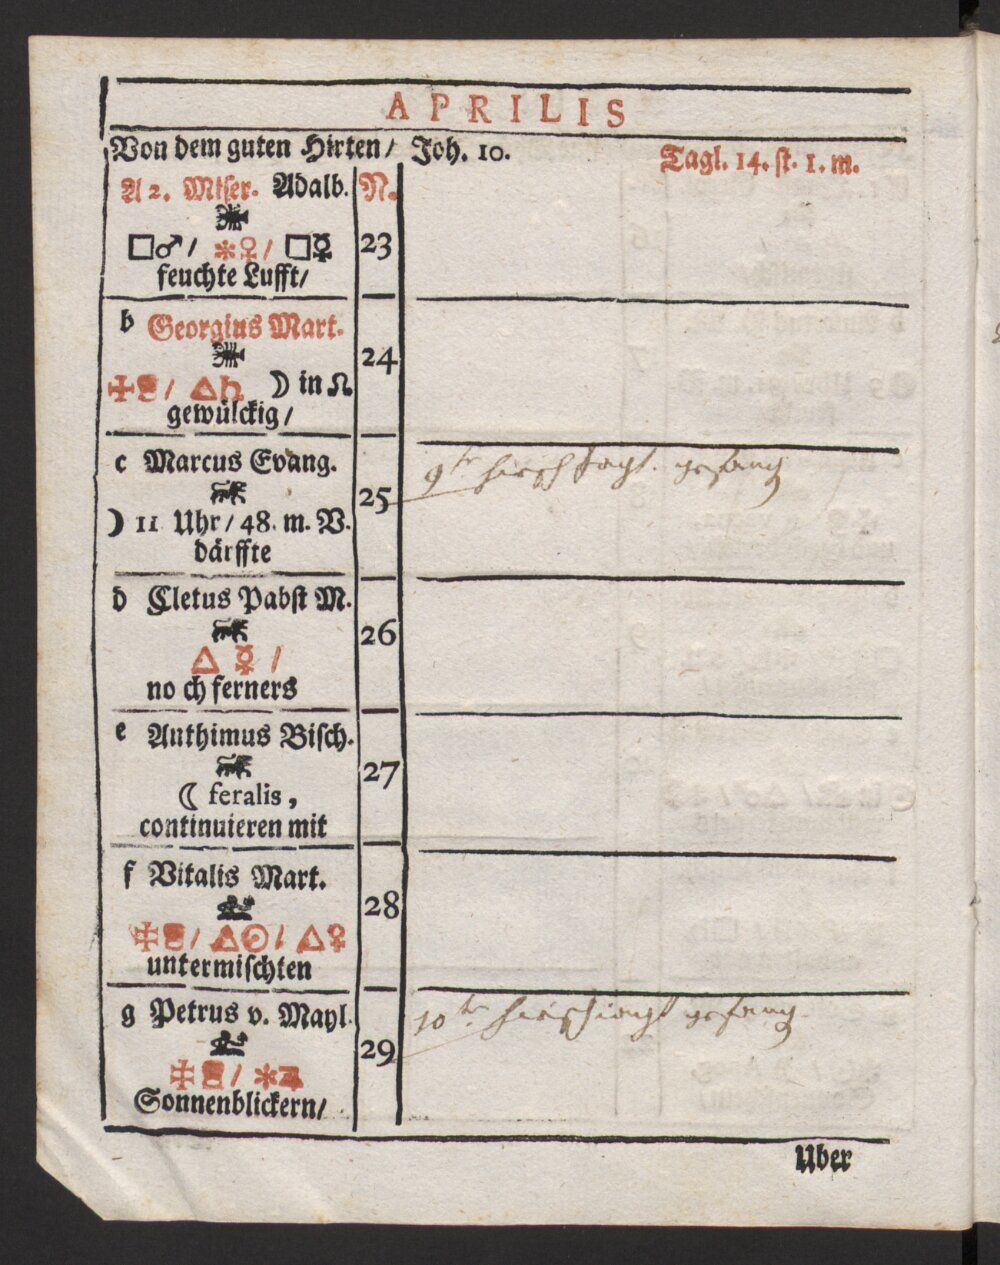 APRILIS
Von dem guten Hirten / Joh. 10.
Tagl. 14. st. 1. m.
A 2. Miser. Adalb. N.
□♂ / ✻♀ / □☿ 23
feuchte Lufft /
b Georgius Mart.
24
/ △♄ ☽ in ☊
gewülckig /
c Marcus Evang.
9te gefang
25
☽ 11 Uhr / 48. m. V.
därffte
d Cletus Pabst M.
26
△ ☿ /
no ch ferners
e Anthimus Bisch.
27
☾ feralis,
continuieren mit
f Vitalis Mart.
28
/ △☉ / △♀
untermischten
g Petrus v. Mayl.
10te gefang
29
/ ✻♃
Sonnenblickern /
Uber